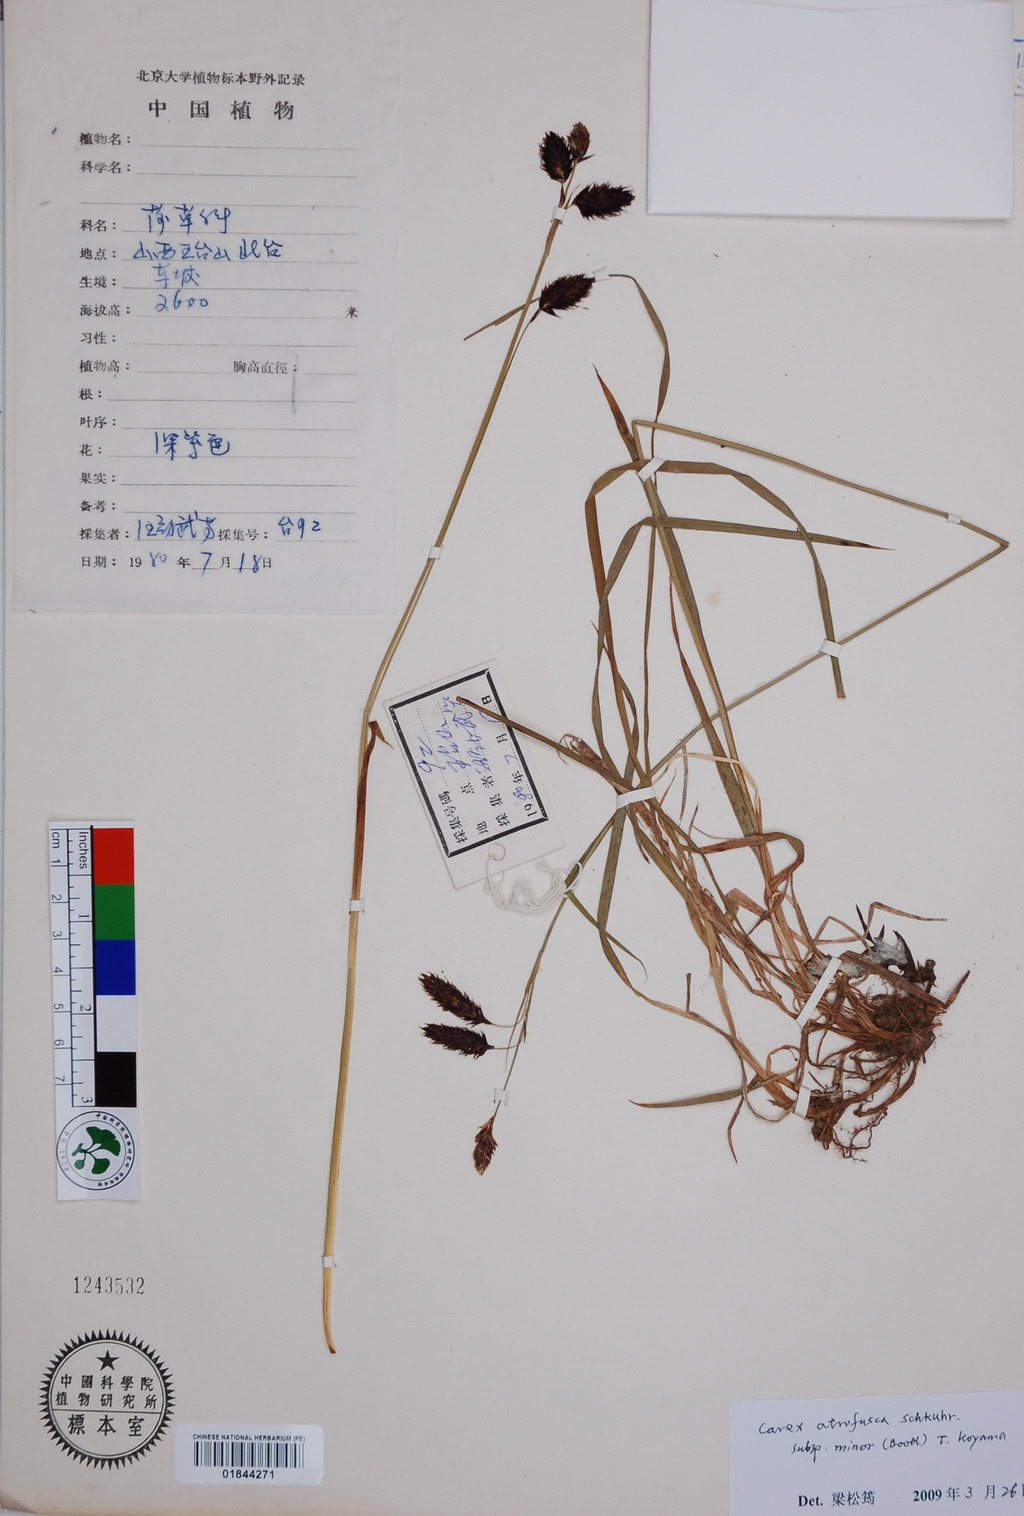 北京大学植物标本野外記录
中国植物
植物名：
科学名：
科名： 莎草科
地点： 山西五台山北台
生境： 草坡
海拔高： 2600 米
习性：
植物高： 胸高直徑：
根：
叶序：
花： 深紫色
果实：
备考：
採集者： 汪劲武 採集号： 台92
日期： 1980年7月18日
採集号碼 92
地点
採集者
1980年7月 日
cm 1 2 3 4 5 6 7
Inches 1 2 3
1243532
中國科學院
植物研究所
標本室
CHINESE NATIONAL HERBARIUM (PE)
01844271
Carex atrofusca Schkuhr.
subsp. minor (Boott) T. Koyama
Det. 梁松筠 2009年3月26日